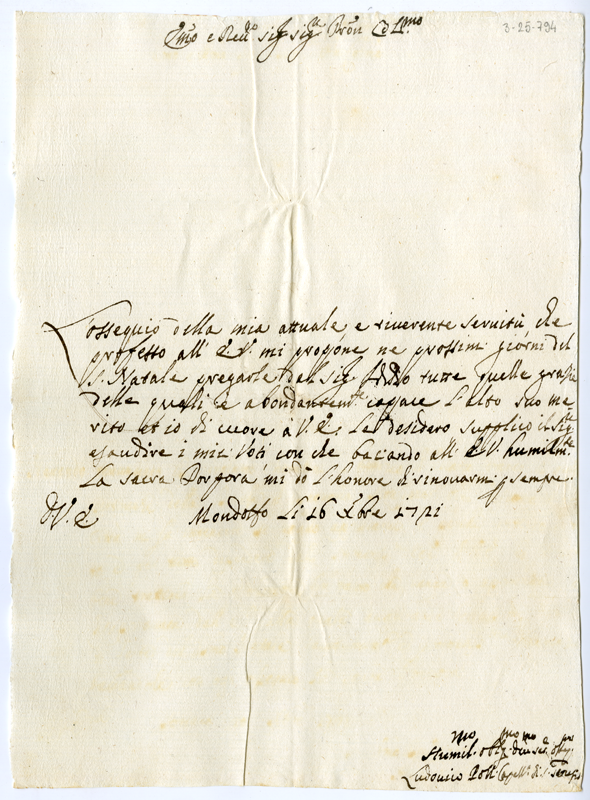 3-25-794
Emo e Red.o sig.r sig.r Pron Col.mo
L'ossequio della mia attuale e riverente servitù, che
professo all' E.V. mi propone ne prossimi giorni del
S. Natale pregarle dal Sig. Iddio tutte quelle grazie
delle quali è abondantem.te capace l'alto suo me
rito et io di cuore à V.E. Le desidero supplico il Sig.re
esaudire i miei Voti con che baciando all' E.V. humilm.te
La sacra Porpora, mi dò l'honore di rinovarmi p sempre.
D V. E.
Mondolfo Li 16 Xbre 1721
Humil.mo obl.mo
Ludovico